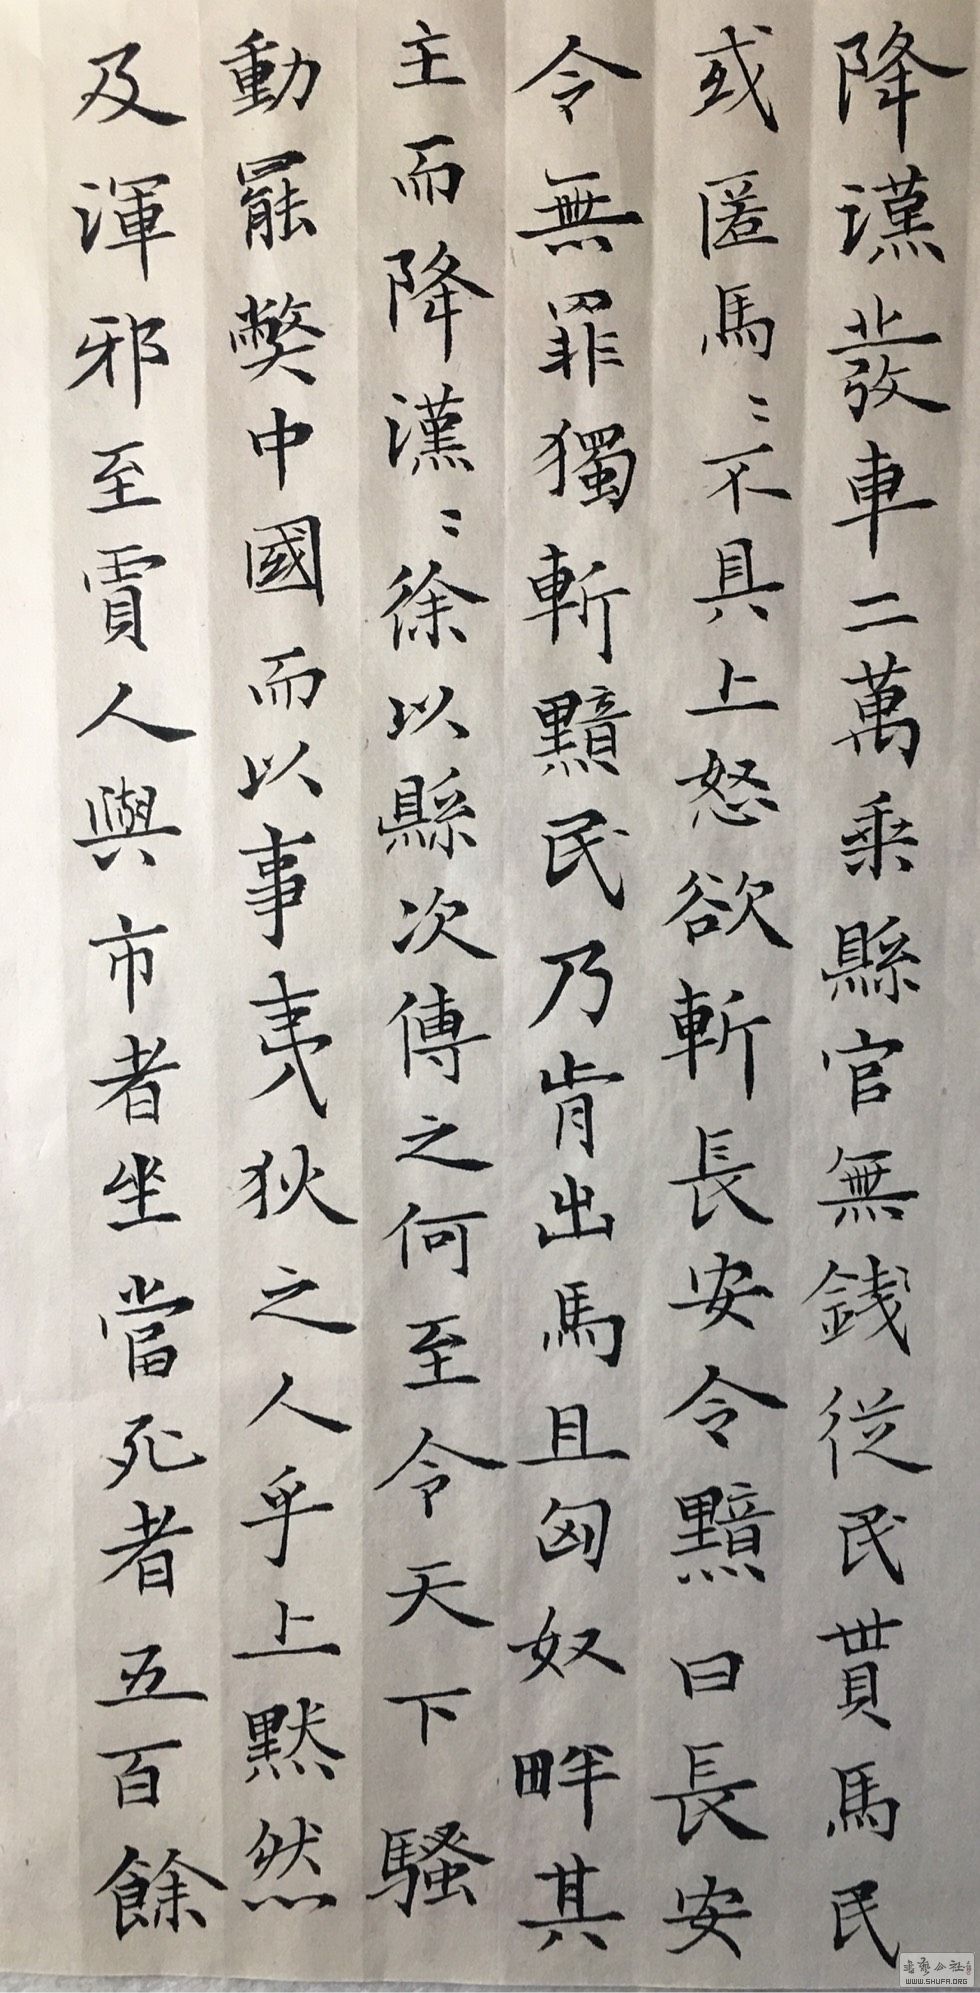 降漢發車二萬乘縣官無錢從民貰馬民
或匿馬〻不具上怒欲斬長安令黯曰長安
令無罪獨斬黯民乃肯出馬且匈奴畔其
主而降漢〻徐以縣次傳之何至令天下騷
動罷獘中國而以事夷狄之人乎上黙然
及渾邪至賈人與市者坐當死者五百餘
WWW.SHUFA.ORG